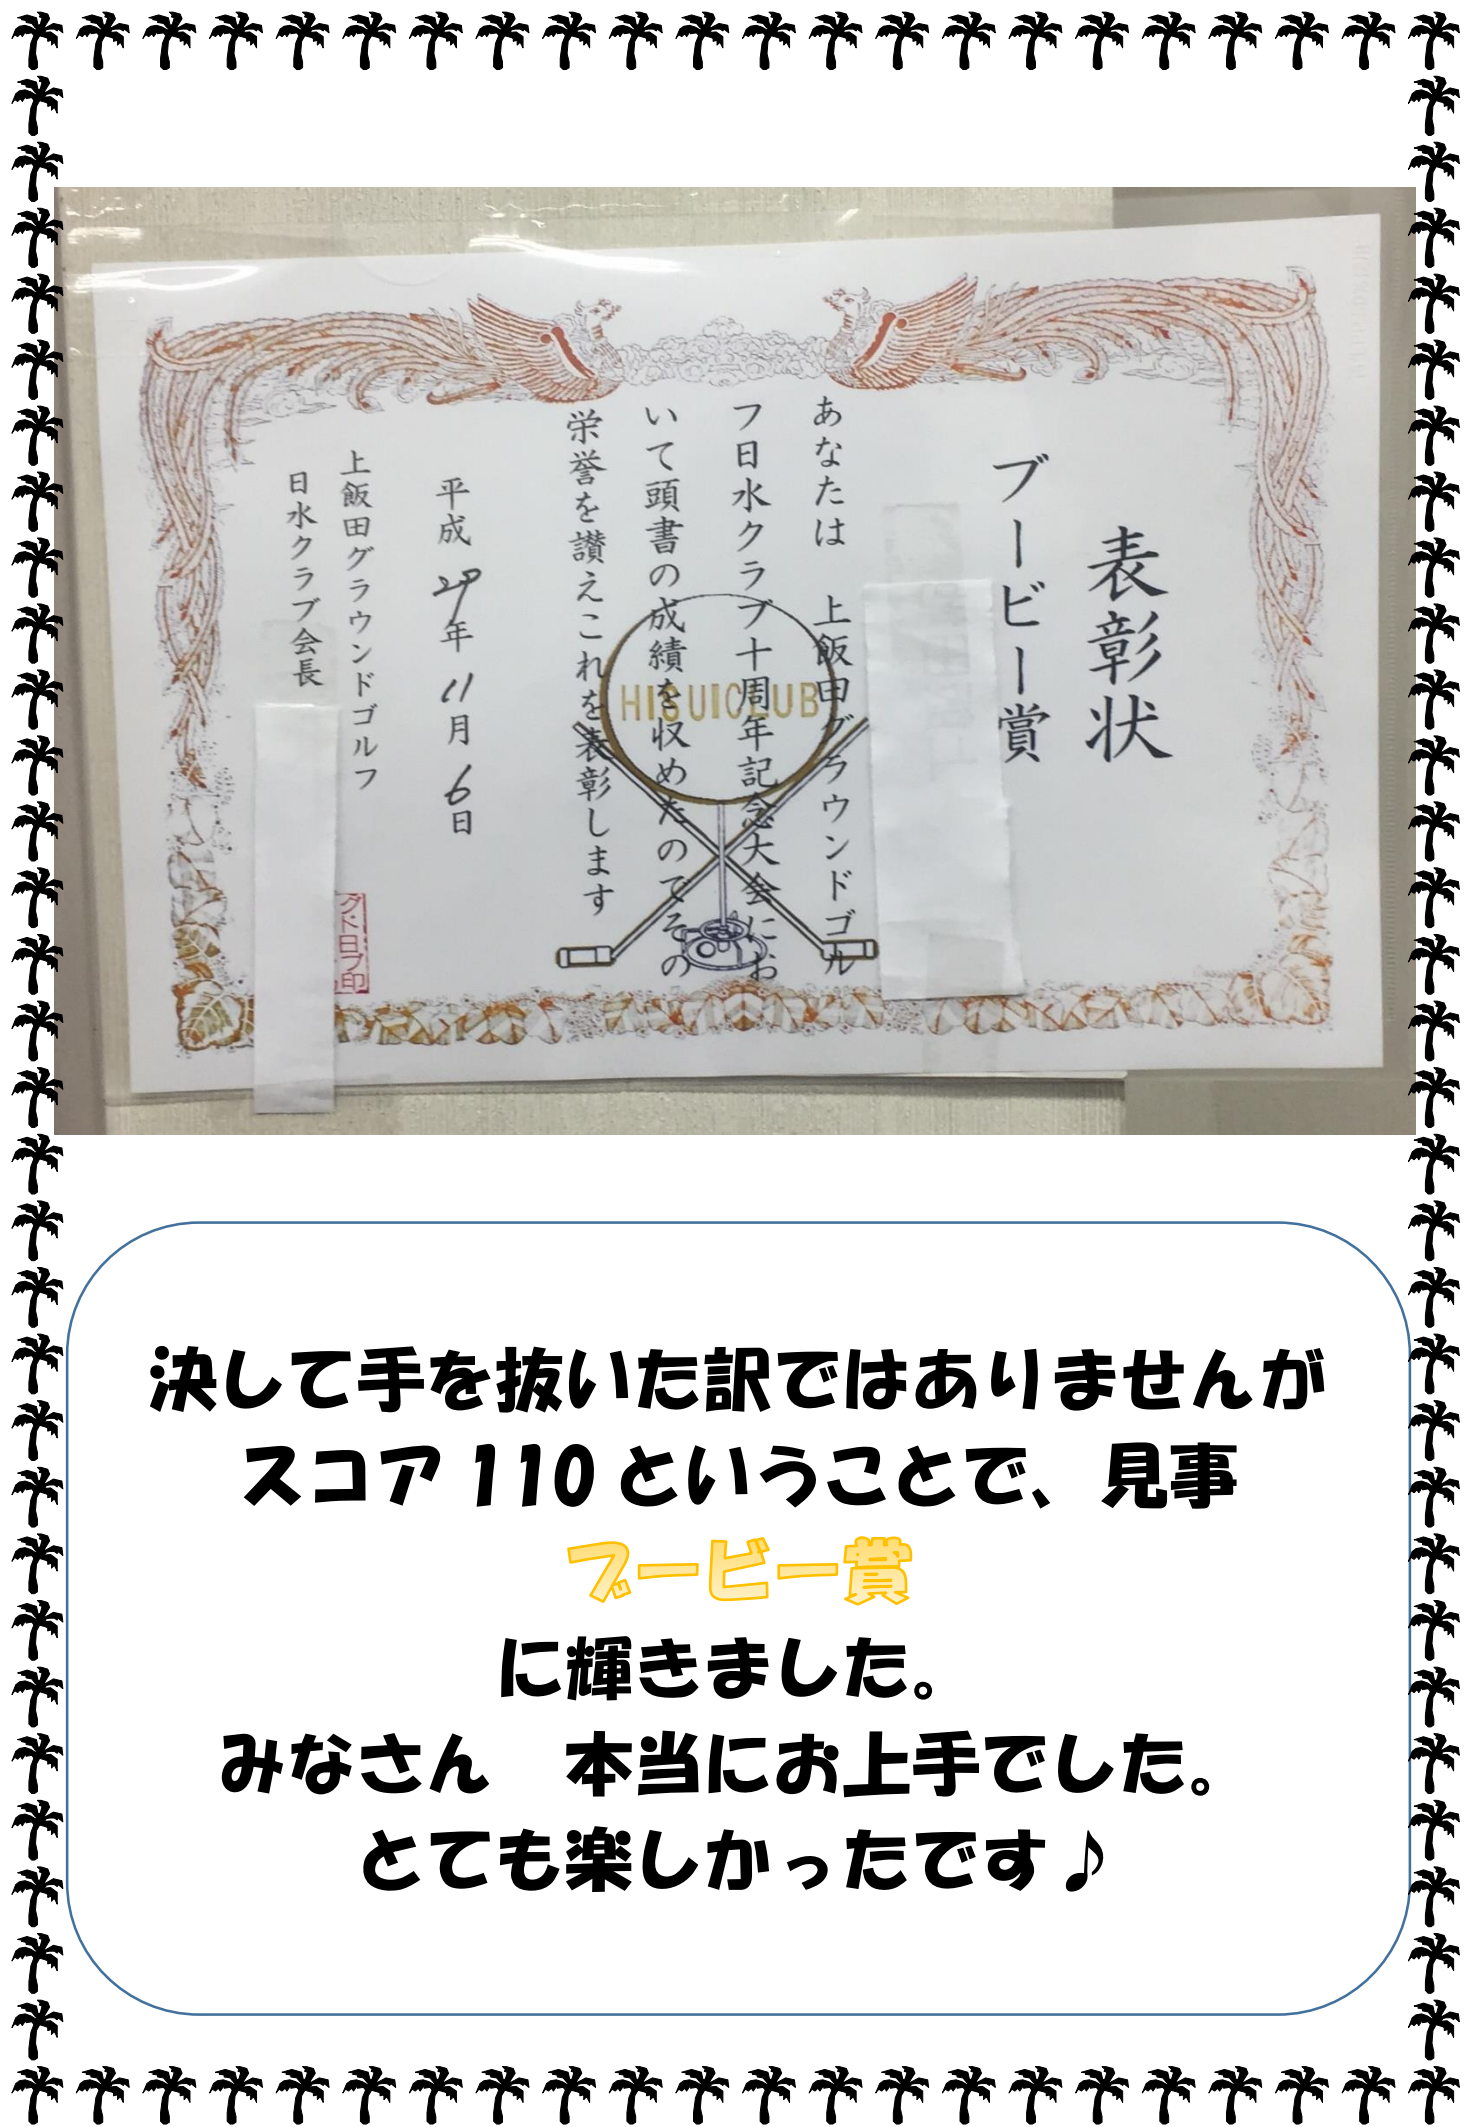 表彰状
ブービー賞
あなたは 上飯田グラウンドゴル
フ日水クラブ十周年記念大会にお
いて頭書の成績を収めたのでその
栄誉を讃えこれを表彰します
平成29年11月6日
上飯田グラウンドゴルフ
日水クラブ会長
HISUICLUB
決して手を抜いた訳ではありませんが
スコア110ということで、見事
ブービー賞
に輝きました。
みなさん　本当にお上手でした。
とても楽しかったです♪